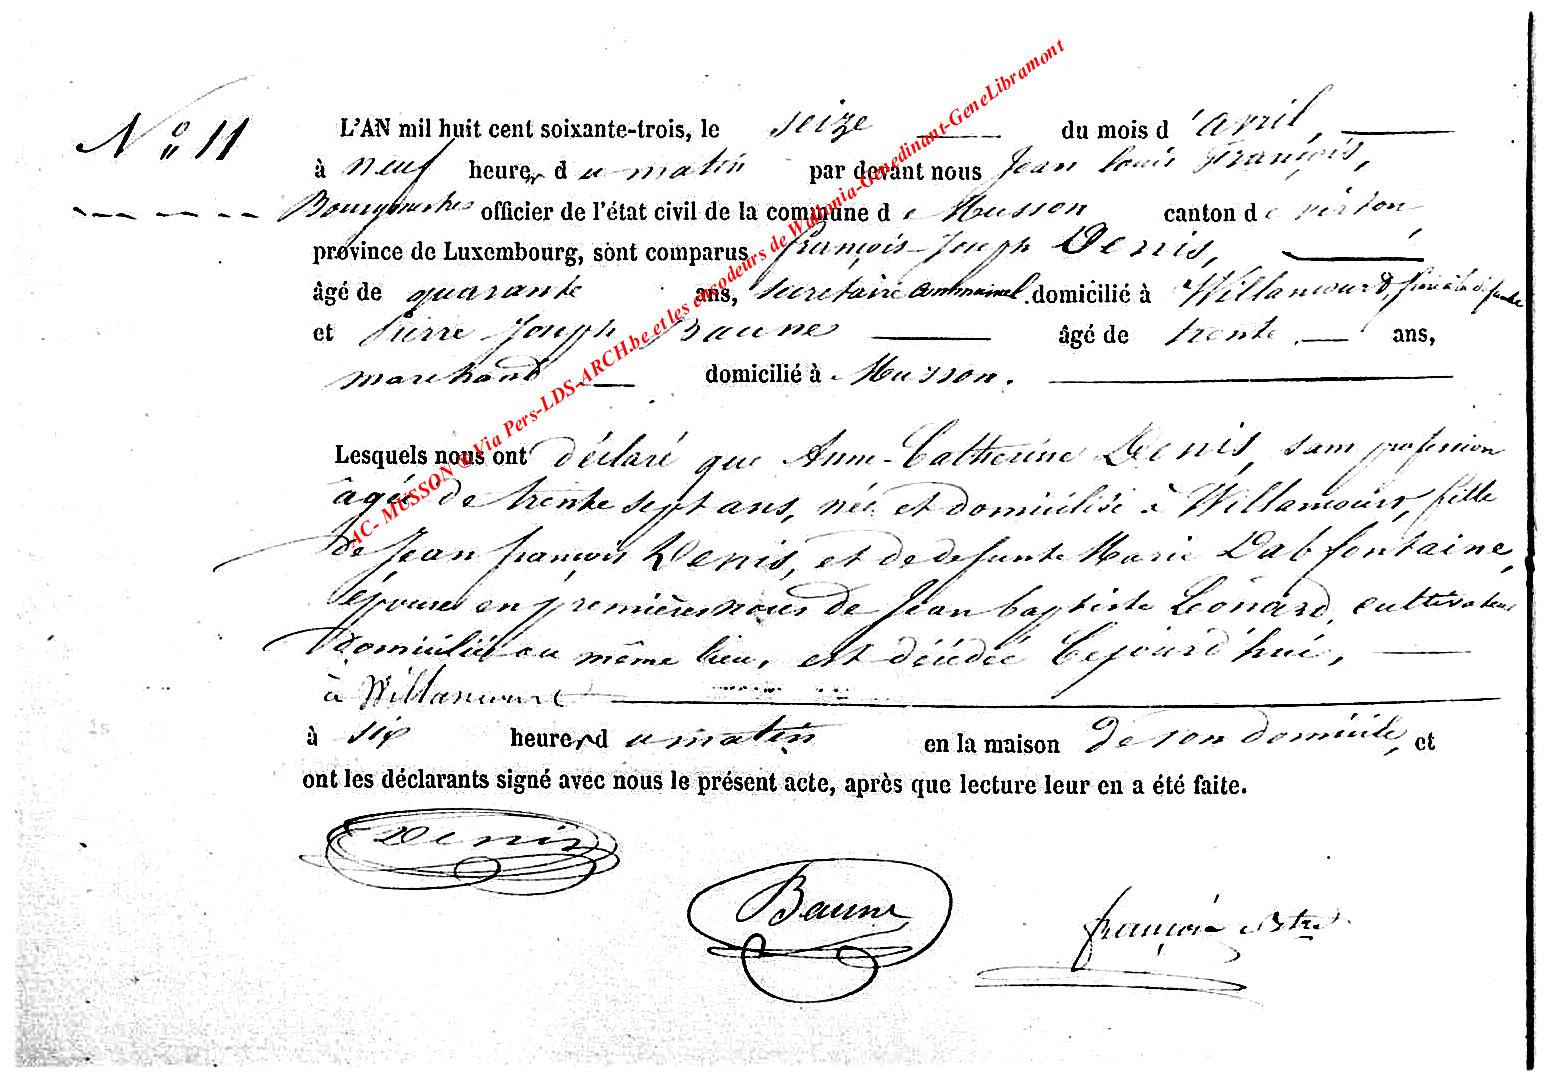 N° 11
L'AN mil huit cent soixante-trois, le seize du mois d'avril,
à neuf heures du matin par devant nous Jean Louis François,
Bourgmestre officier de l'état civil de la commune de Musson canton de virton,
province de Luxembourg, sont comparus françois-Joseph Denis,
âgé de quarante ans, secretaire communal, domicilié à Willancourt, frère à la défunte
et Pierre Joseph Baune âgé de trente ans,
marchand domicilié à Musson.
Lesquels nous ont déclaré que Anne-Catherine Denis, sans profession
âgée de trente sept ans, née et domiciliée à Willancourt, fille
de Jean françois Denis, et de defunte Marie Dabfontaine,
épouse en premières noces de Jean baptiste Léonard, cultivateur
domicilié au même lieu, est décédée Cejourd'hui,
à Willancourt
à six heures du matin en la maison de son domicile, et
ont les déclarants signé avec nous le présent acte, après que lecture leur en a été faite.
Denis
Baune
françois Btre
AC- MUSSON © Via Pers-LDS-ARCH.be et les encodeurs de Wallonia-Genedinant-GeneLibramont